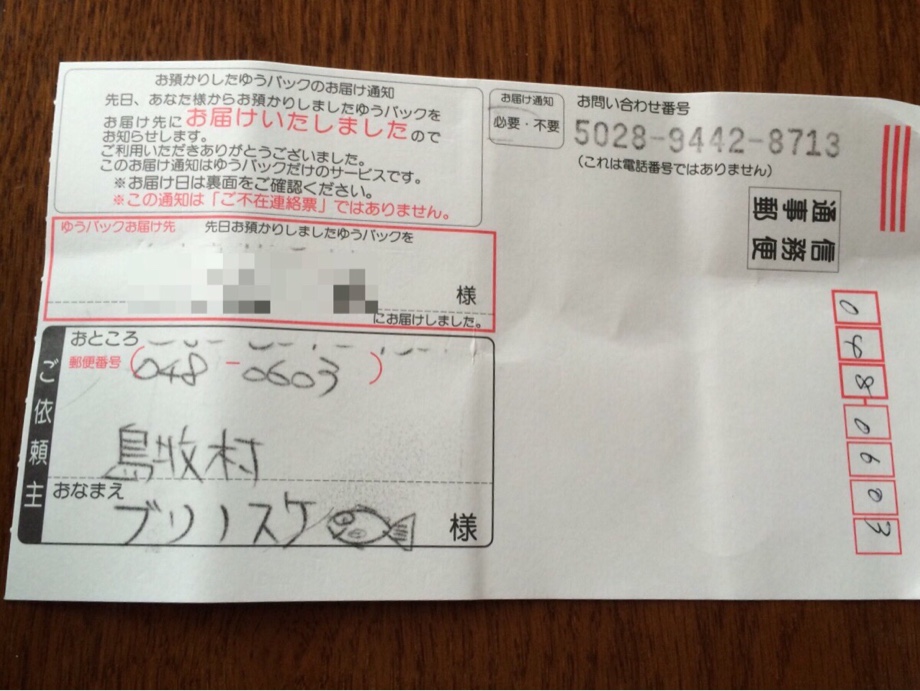 お預かりしたゆうパックのお届け通知
先日、あなた様からお預かりしましたゆうパックを
お届け先にお届けいたしましたので
お知らせします。
ご利用いただきありがとうございました。
このお届け通知はゆうパックだけのサービスです。
※お届け日は裏面をご確認ください。
※この通知は「ご不在連絡票」ではありません。
お届け通知
必要・不要
お問い合わせ番号
5028-9442-8713
(これは電話番号ではありません)
通信
事務
郵便
ゆうパックお届け先 先日お預かりしましたゆうパックを
様
にお届けしました。
ご依頼主
おところ
郵便番号(048-0603)
島牧村
おなまえ
ブリノスケ 様
0480603